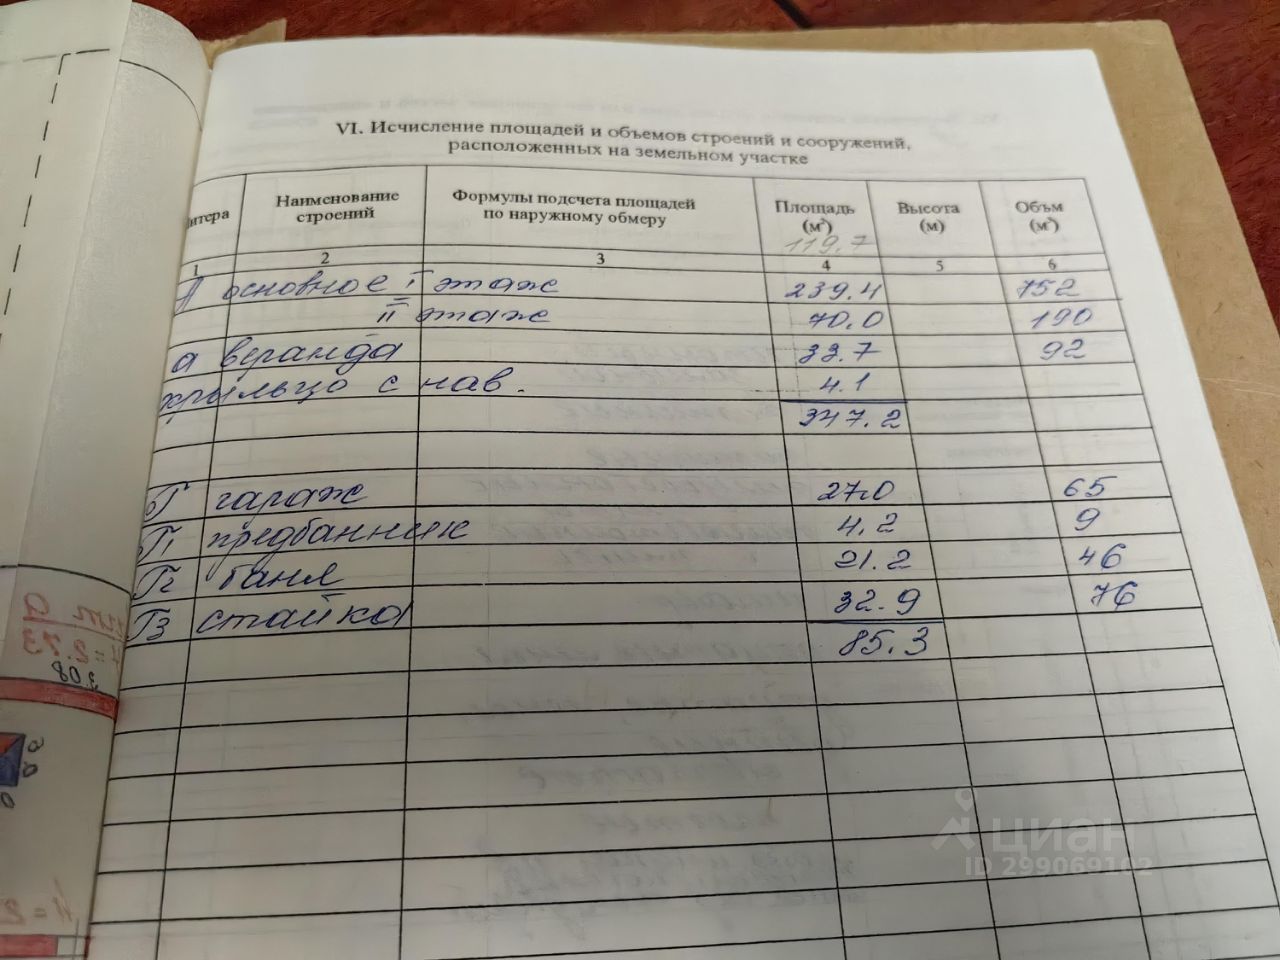 VI. Исчисление площадей и объемов строений и сооружений,
расположенных на земельном участке
итера Наименование строений Формулы подсчета площадей по наружному обмеру Площадь (м²) Высота (м) Объм (м³)
119.7
1 2 3 4 5 6
А основное I этаж 239.4 752
II этаж 70.0 190
а веранда 33.7 92
крыльцо с нав. 4.1
347.2
Г гараж 27.0 65
Г1 предбанник 4.2 9
Г2 баня 21.2 46
Г3 стайка 32.9 76
85.3
308
циан
ID 299069102